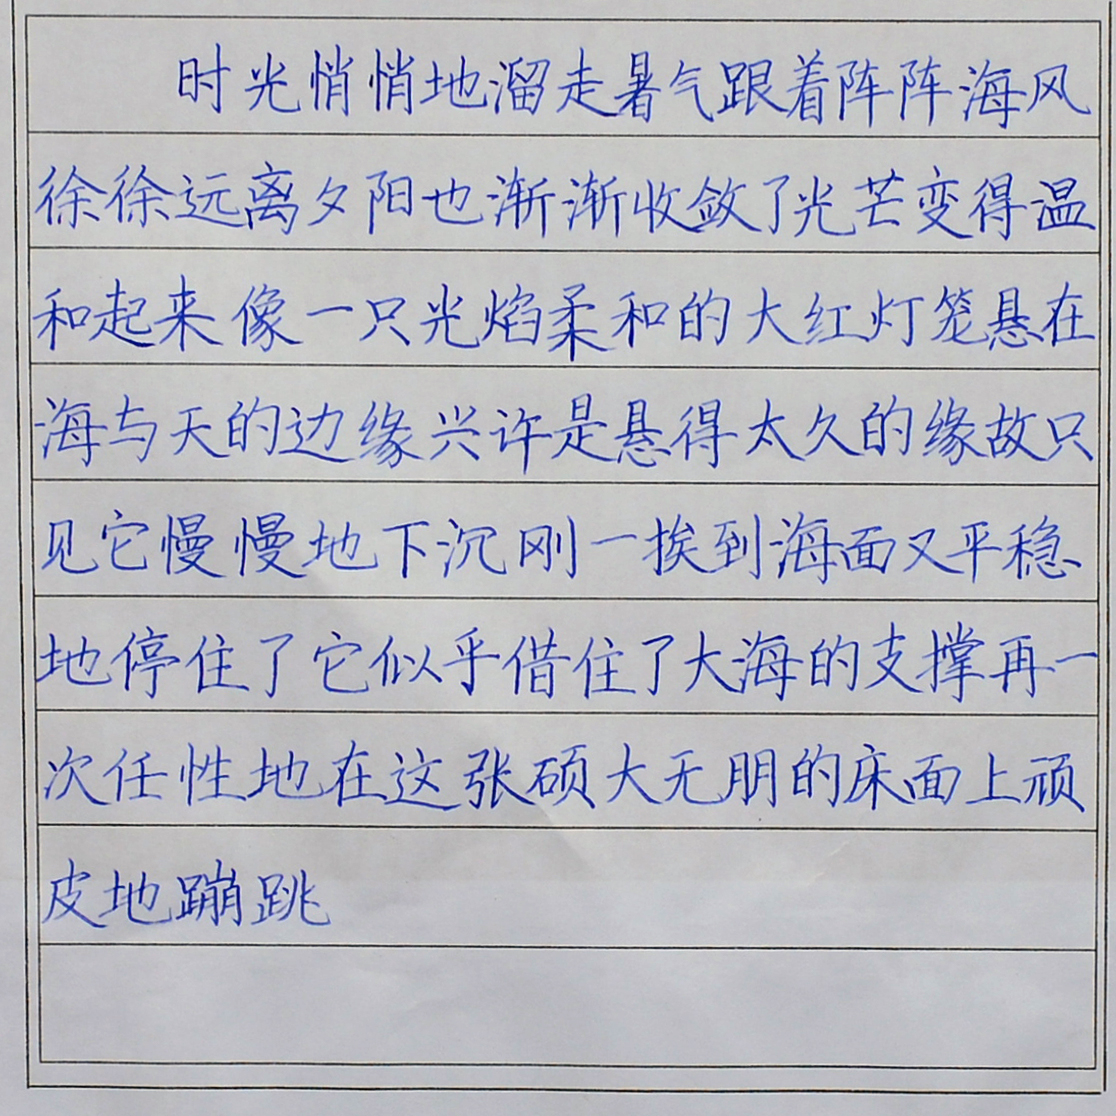 时光悄悄地溜走暑气跟着阵阵海风
徐徐远离夕阳也渐渐收敛了光芒变得温
和起来像一只光焰柔和的大红灯笼悬在
海与天的边缘兴许是悬得太久的缘故只
见它慢慢地下沉刚一挨到海面又平稳
地停住了它似乎借住了大海的支撑再一
次任性地在这张硕大无朋的床面上顽
皮地蹦跳